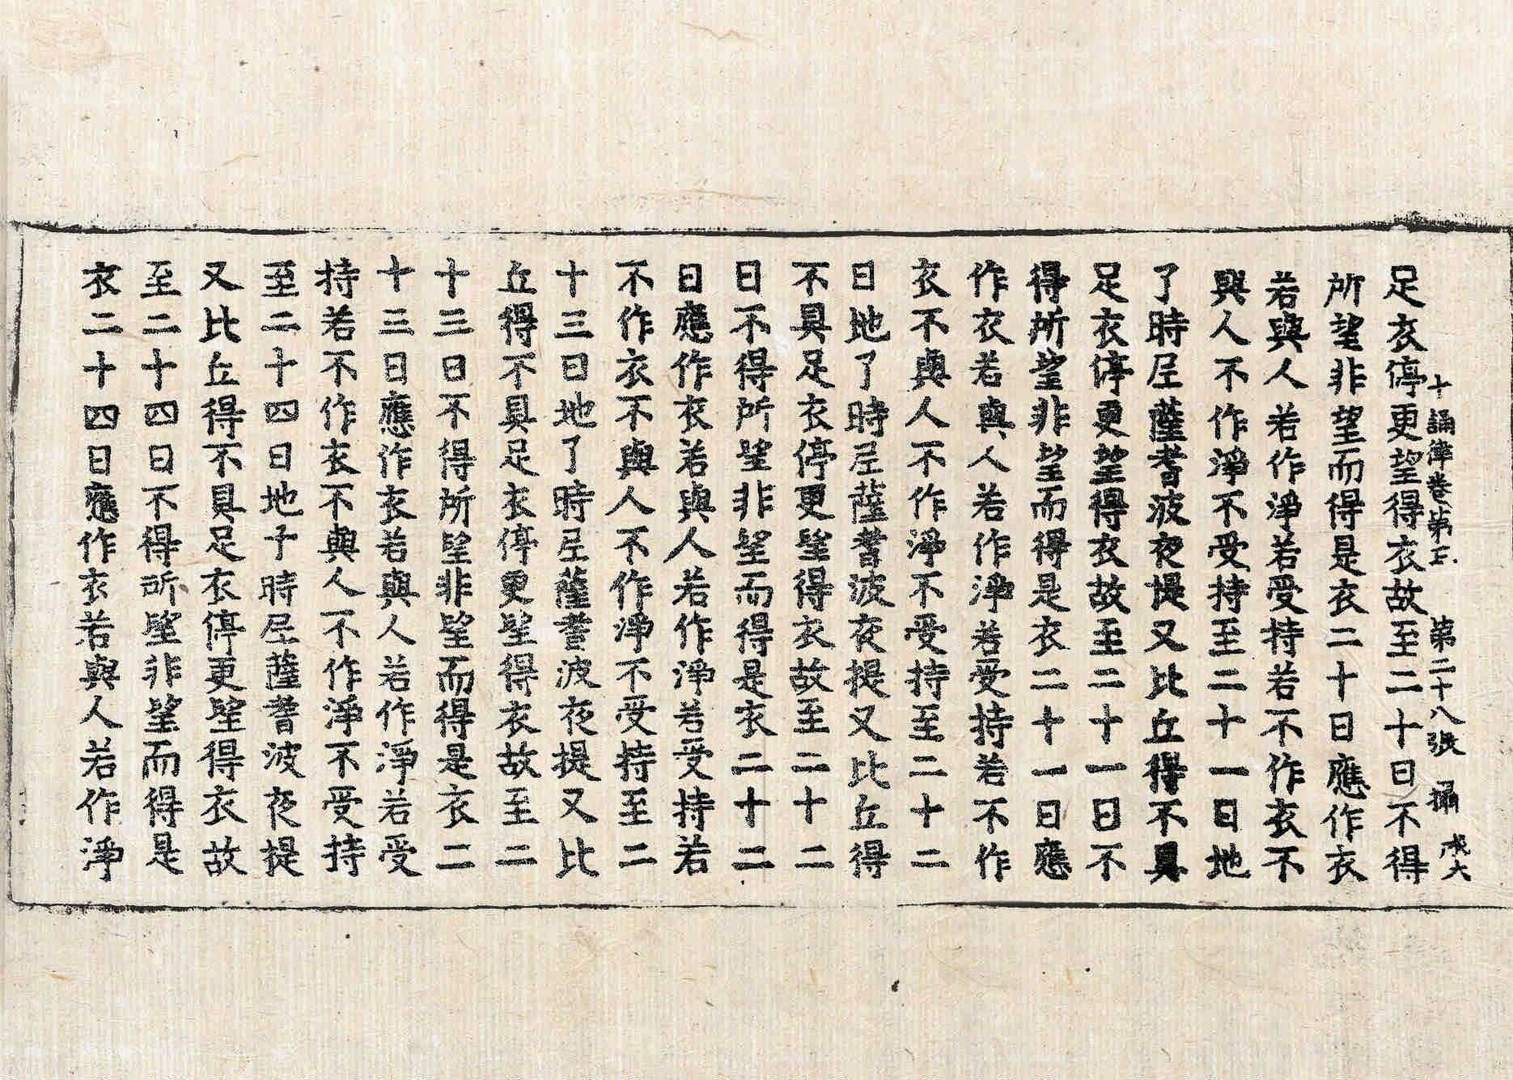 十誦律卷第五 第二十八張 攝
足衣停更望得衣故至二十日不得
所望非望而得是衣二十日應作衣
若與人若作淨若受持若不作衣不
與人不作淨不受持至二十一日地
了時尼薩耆波夜提又比丘得不具
足衣停更望得衣故至二十一日不
得所望非望而得是衣二十一日應
作衣若與人若作淨若受持若不作
衣不與人不作淨不受持至二十二
日地了時尼薩耆波夜提又比丘得
不具足衣停更望得衣故至二十二
日不得所望非望而得是衣二十二
日應作衣若與人若作淨若受持若
不作衣不與人不作淨不受持至二
十三日地了時尼薩耆波夜提又比
丘得不具足衣停更望得衣故至二
十三日不得所望非望而得是衣二
十三日應作衣若與人若作淨若受
持若不作衣不與人不作淨不受持
至二十四日地子時尼薩耆波夜提
又比丘得不具足衣停更望得衣故
至二十四日不得所望非望而得是
衣二十四日應作衣若與人若作淨